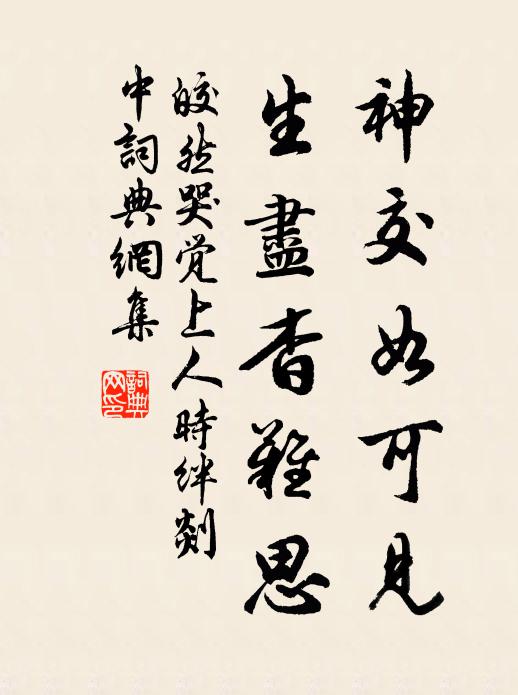 神交如可見
生盡杳難思
皎然哭覚上人時絆剡
中詞典網集
詞典
网印